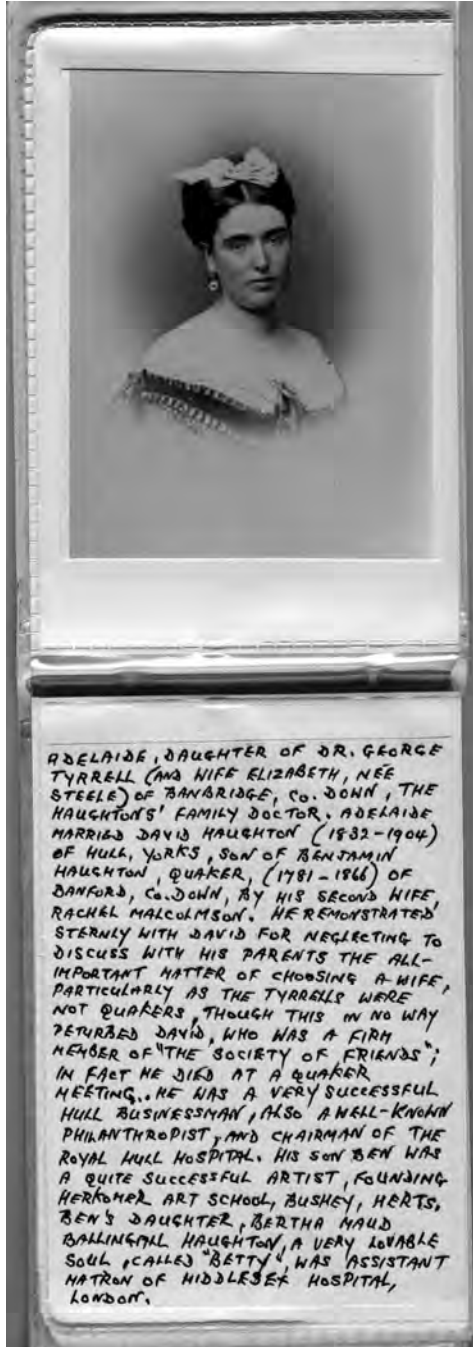 ADELAIDE, DAUGHTER OF DR. GEORGE
TYRRELL (AND WIFE ELIZABETH, NÉE
STEELE) OF BANBRIDGE, CO. DOWN, THE
HAUGHTONS' FAMILY DOCTOR. ADELAIDE
MARRIED DAVID HAUGHTON (1832-1904)
OF HULL, YORKS, SON OF BENJAMIN
HAUGHTON, QUAKER, (1781-1866) OF
BANFORD, CO. DOWN, BY HIS SECOND WIFE,
RACHEL MALCOLMSON. HE REMONSTRATED
STERNLY WITH DAVID FOR NEGLECTING TO
DISCUSS WITH HIS PARENTS THE ALL-
IMPORTANT MATTER OF CHOOSING A WIFE,
PARTICULARLY AS THE TYRRELLS WERE
NOT QUAKERS, THOUGH THIS IN NO WAY
PETURBED DAVID, WHO WAS A FIRM
MEMBER OF "THE SOCIETY OF FRIENDS";
IN FACT HE DIED AT A QUAKER
MEETING.. HE WAS A VERY SUCCESSFUL
HULL BUSINESSMAN, ALSO A WELL-KNOWN
PHILANTHROPIST, AND CHAIRMAN OF THE
ROYAL HULL HOSPITAL. HIS SON BEN WAS
A QUITE SUCCESSFUL ARTIST, FOUNDING
HERKOMER ART SCHOOL, BUSHEY, HERTS.
BEN'S DAUGHTER, BERTHA MAUD
BALLINGALL HAUGHTON, A VERY LOVABLE
SOUL, CALLED "BETTY", WAS ASSISTANT
MATRON OF MIDDLESEX HOSPITAL,
LONDON.